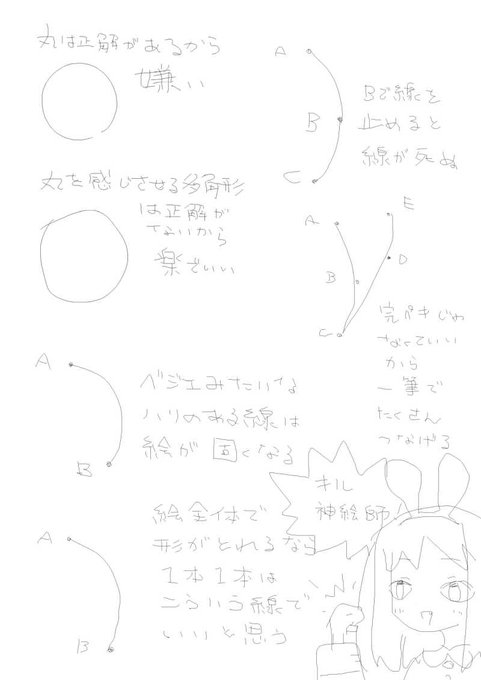 丸は正解があるから
嫌い
A
B
C
Bで線を
止めると
線が死ぬ
丸を感じさせる多角形
は正解が
ないから
楽でいい
A
B
C
D
E
完ペキじゃ
なくていい
から
一筆で
たくさん
つなげる
A
B
ベジエみたいな
ハリのある線は
絵が固くなる
A
B
絵全体で
形がとれるなら
1本1本は
こういう線で
いいと思う
キル
神絵師